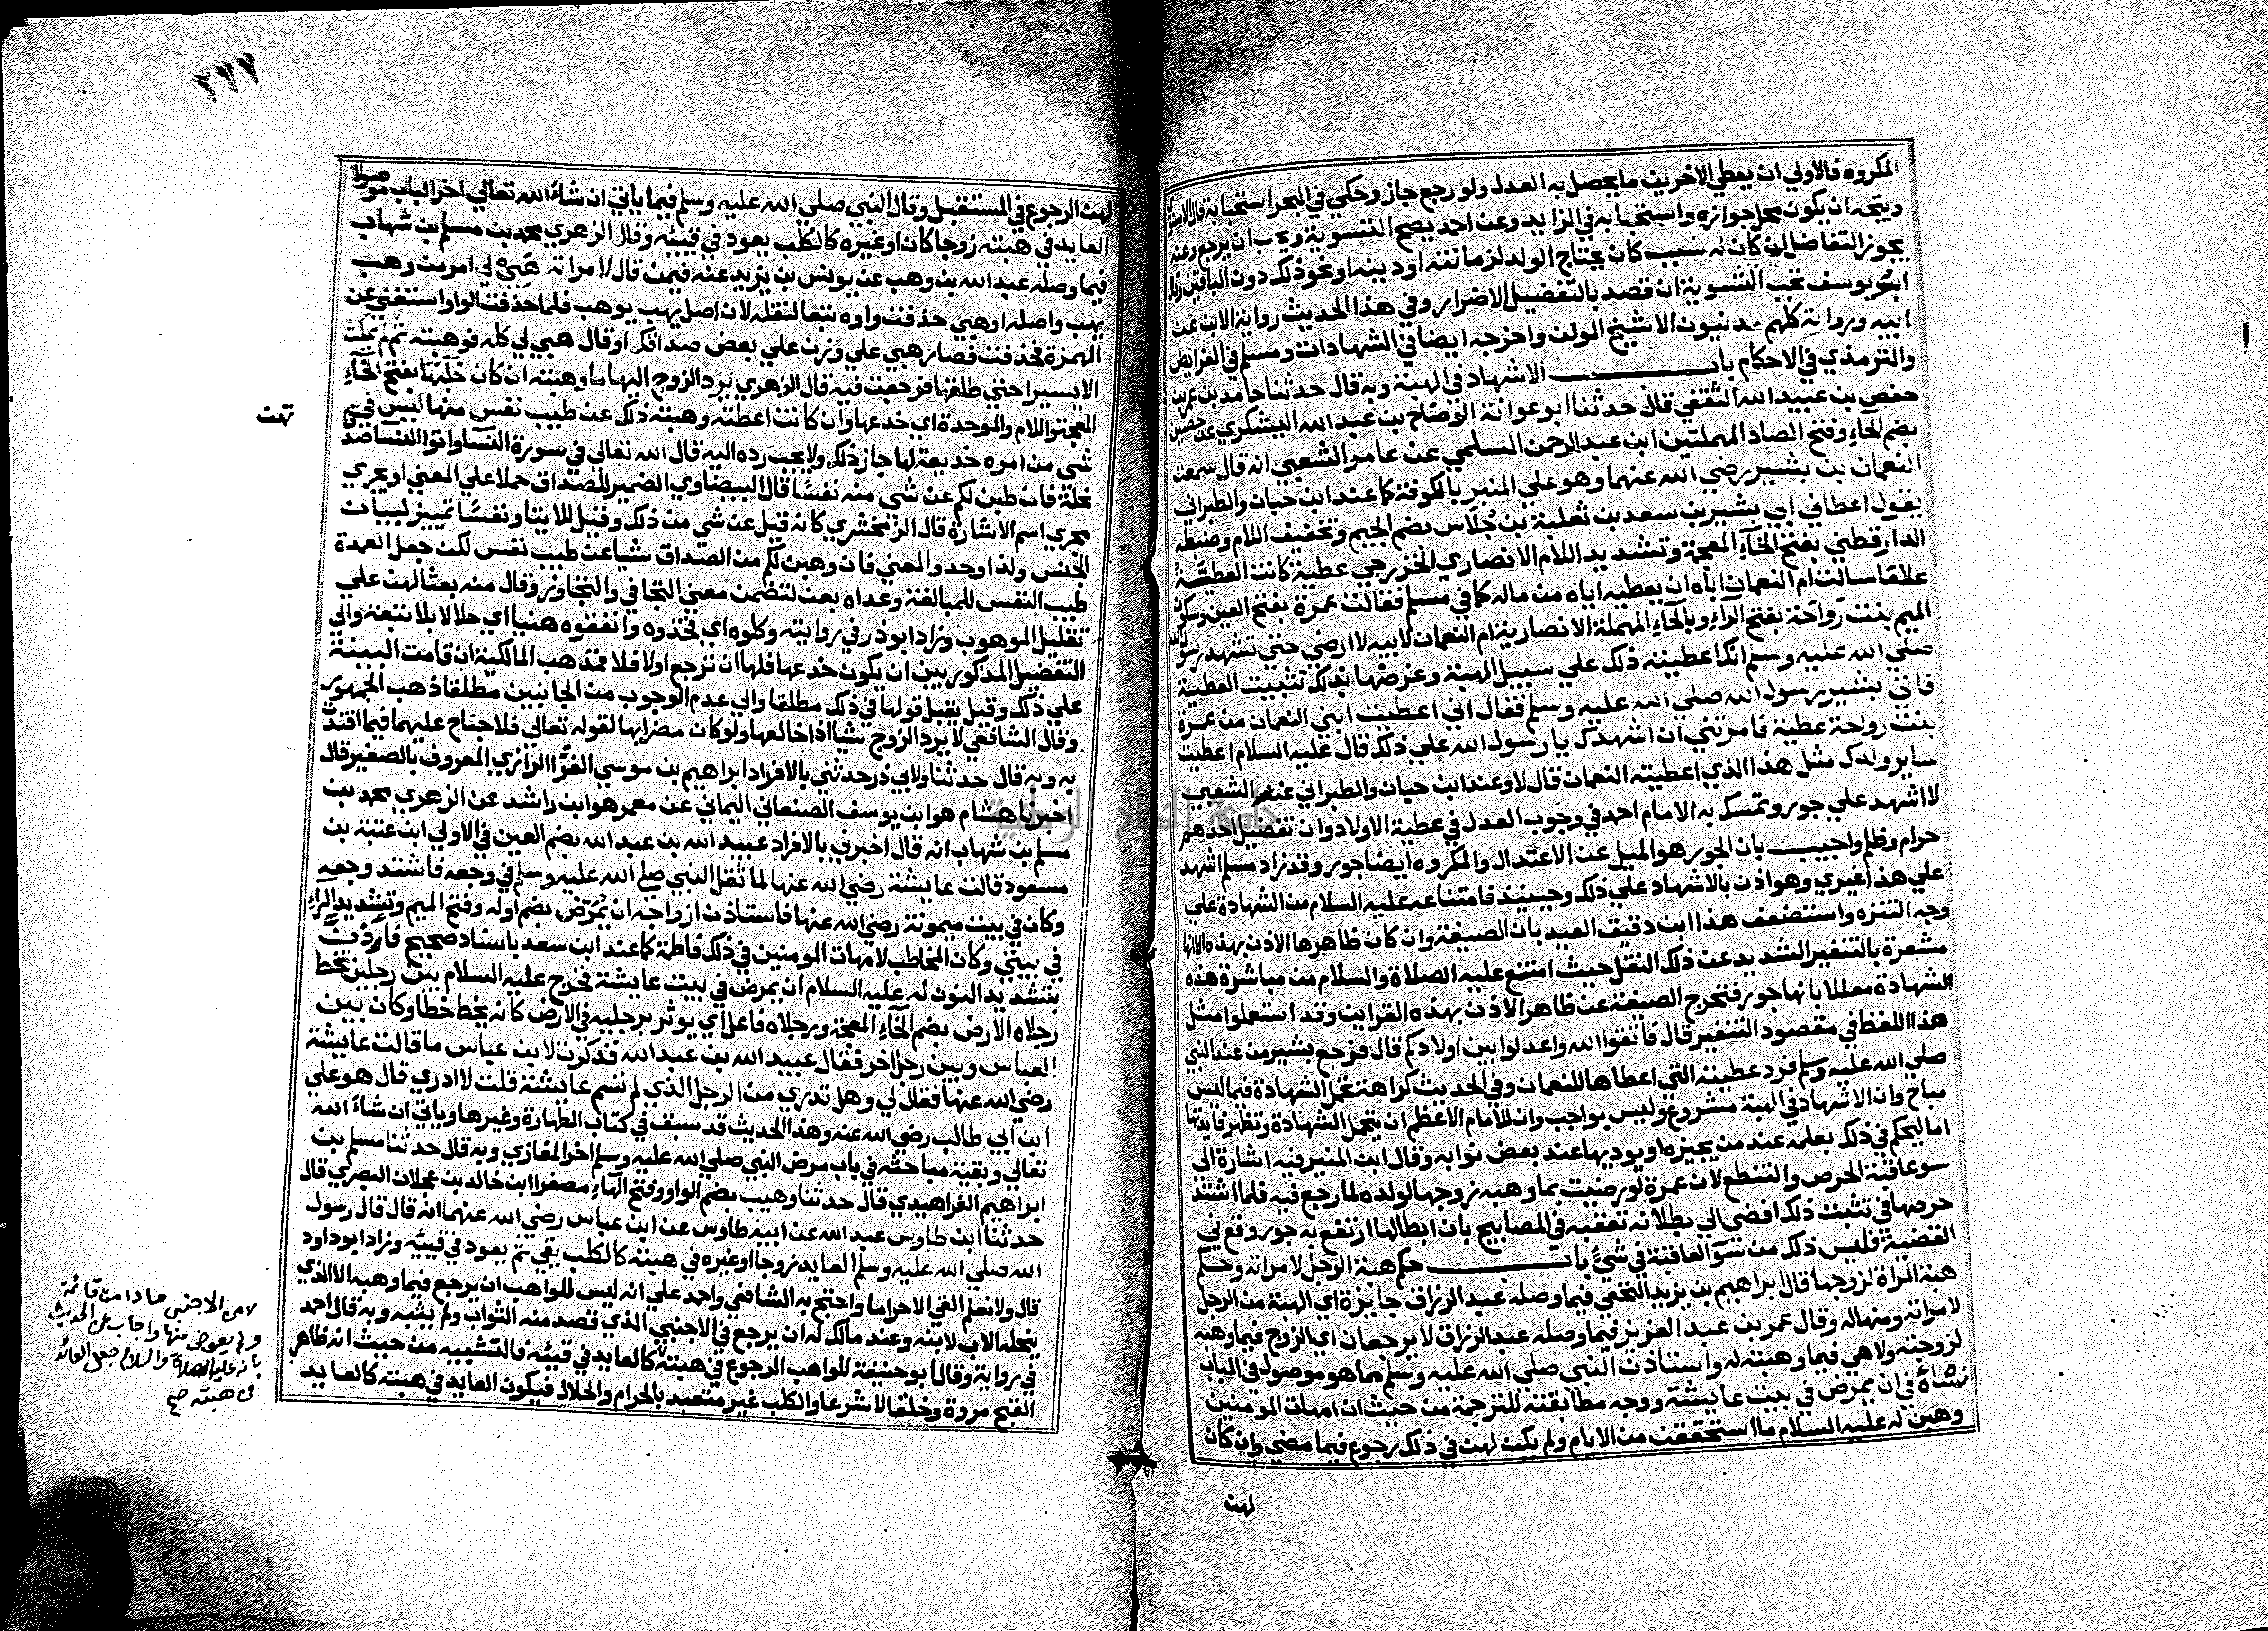 المكروه فالاولي ان يعطي الاخرين ما يحصل به العدل ولو رجع جاز وحكي في البحر استحبابه قال الاسنوي
ويتجه ان يكون محل جوازه واستحبابه في الزايد وعن احمد يصح التسوية ويجب ان يرجع وعنه
يجوز التفاضل ان كان له سبب كان يحتاج الولد لزمانته او دينه او نحو ذلك دون الباقين وقال
ابو يوسف تجب التسوية ان قصد بالتفضيل الاضرار وفي هذا الحديث رواية الابن عن
ابيه ورواته كلهم مدنيون الا شيخ المولف واخرجه ايضا في الشهادات ومسلم في الفرايض
والترمذي في الاحكام باب الاشهاد في الهبة وبه قال حدثنا حامد بن عمر بن
حفص بن عبيد الله الثقفي قال حدثنا ابو عوانة الوضاح بن عبد الله اليشكري عن حصين
بضم الحاء وفتح الصاد المهملتين ابن عبد الرحمن السلمي عن عامر الشعبي انه قال سمعت
النعمان بن بشير رضي الله عنهما وهو علي المنبر بالكوفة كما عند ابن حبان والطبراني
يقول اعطاني ابي بشير بن سعد بن ثعلبة بن جُلاس بضم الجيم وتخفيف اللام وضبطه
الدارقطني بفتح الخاء المعجمة وتشديد اللام الانصاري الخزرجي عطية كانت العطية
غلاما سالت ام النعمان اباه ان يعطيه اياه من ماله كما في مسلم فقالت عمرة بفتح العين وسكون
الميم بنت رواحة بفتح الراء وبالحاء المهملة الانصارية ام النعمان لابيه لا ارضي حتي تشهد رسول الله
صلي الله عليه وسلم انك اعطيته ذلك علي سبيل الهبة وغرضها بذلك تثبيت العطية
فاتي بشير رسول الله صلي الله عليه وسلم فقال اني اعطيت ابني النعمان من عمرة
بنت رواحة عطية فامرتني ان اشهدك يا رسول الله علي ذلك قال عليه السلام اعطيت
ساير ولدك مثل هذا الذي اعطيته النعمان قال لا وعند ابن حبان والطبراني عن الشعبي
لا اشهد علي جور وتمسك به الامام احمد في وجوب العدل في عطية الاولاد وان تفضيل احدهم
حرام وظلم واجيب بان الجور هو الميل عن الاعتدال والمكروه ايضا جور وقد زاد مسلم اشهد
علي هذا غيري وهو اذن بالاشهاد علي ذلك وحينيذ فامتناعه عليه السلام من الشهادة علي
وجه التنزه واستضعف هذا ابن دقيق العيد بان الصيغة وان كان ظاهرها الاذن بهذه الا انها
مشعرة بالتنفير الشديد عن ذلك الفعل حيث امتنع عليه الصلاة والسلام من مباشرة هذه
الشهادة معللا بانها جور فتخرج الصيغة عن ظاهر الاذن بهذه القراين وقد استعملوا مثل
هذا اللفظ في مقصود التنفير قال فاتقوا الله واعدلوا بين اولادكم قال فرجع بشير من عند النبي
صلي الله عليه وسلم فرد عطيته التي اعطاها للنعمان وفي الحديث كراهة تحمل الشهادة فيما ليس
مباح وان الاشهاد في الهبة مشروع وليس بواجب وان للامام الاعظم ان يتحمل الشهادة وتظهر فايدتها
اما ليحكم في ذلك بعلمه عند من يجيزه او يوديها عند بعض نوابه وقال ابن المنير فيه اشارة الي
سو عاقبة الحرص والتنطع لان عمرة لو رضيت بما وهبه زوجها لولده لما رجع فيه فلما اشتد
حرصها في تثبت ذلك افضي الي بطلانه تعقبه في المصابيح بان ابطالها ارتفع به جور وقع في
القضية فليس ذلك من سو العاقبة في شي باب حكم هبة الرجل لامراته وحكم
هبة المراة لزوجها قال ابراهيم بن يزيد النخعي فيما وصله عبد الرزاق جايزة اي الهبة من الرجل
لامراته ومنها له وقال عمر بن عبد العزيز فيما وصله عبد الرزاق لا يرجعان اي الزوج فيما وهبه
لزوجته ولا هي فيما وهبته له واستاذن النبي صلي الله عليه وسلم مما هو موصول في الباب
نساه في ان يمرض في بيت عايشة ووجه مطابقته للترجمة من حيث ان امهات المومنين
وهبن له عليه السلام ما استحققن من الايام ولم يكن لهن في ذلك رجوع فيما مضي وان كان
لهن
٢٢٧
لهن الرجوع في المستقبل وقال النبي صلي الله عليه وسلم فيما ياتي ان شاء الله تعالي اخر الباب موصولا
العايد في هبته زوجا كان او غيره كالكلب يعود في قيئه وقال الزهري محمد بن مسلم بن شهاب
فيما وصله عبد الله بن وهب عن يونس بن يزيد عنه فيمن قال لامراته هَبي لي امر من وهب
يهب واصله اوهبي حذفت واوه تبعا لفعله لان اصل يهب يوهب فلما حذفت الواو استغني عن
الهمزة فحذفت فصار هبي علي وزن علي بعض صداقك او قال هبي لي كله فوهبته ثم لم يمكث
الا يسيرا حتي طلقها فرجعت فيه قال الزهري يرد الزوج اليها ما وهبته ان كان خلبها بفتح الخاء
المعجمة واللام والموحدة اي خدعها وان كانت اعطته وهبته ذلك عن طيب نفس منها ليس في
شي من امره خديعة لها جاز ذلك ولا يجب رده اليه قال الله تعالي في سورة النساء واتوا النسا صد
نحلة فان طبن لكم عن شي منه نفسًا قال البيضاوي الضمير للصداق حملا علي المعني او يجري
مجري اسم الاشارة قال الزمخشري كانه قيل عن شي من ذلك وقيل للايتا ونفسًا تمييز لبيان
الجنس ولذا وحد والمعني فان وهبن لكم من الصداق شيا عن طيب نفس لكن جعل العمدة
طيب النفس للمبالغة وعداه بعن لتضمن معني التجافي والتجاوز وقال منه بعثا لهن علي
تقليل الموهوب وزاد ابو ذر في روايته وكلوه اي فخذوه وانفقوه هنيا اي حلالا بلا تبعة والي
التفصيل المذكور بين ان يكون خدعها فلها ان ترجع او لا فلا ذهب المالكية ان قامت البينة
علي ذلك وقيل يقبل قولها في ذلك مطلقا والي عدم الوجوب من الجانبين مطلقا ذهب الجمهور
وقال الشافعي لا يرد الزوج شيا اذا خالعها ولو كان مضرا بها لقوله تعالي فلا جناح عليهما فيما افتدت
به وبه قال حدثنا ولابي ذر حدثني بالافراد ابراهيم بن موسي الفرا الرازي المعروف بالصغير قال
اخبرنا هشام هو ابن يوسف الصنعاني اليماني عن معمر هو ابن راشد عن الزهري محمد بن
مسلم بن شهاب انه قال اخبرني بالافراد عبيد الله بن عبد الله بضم العين في الاولي ابن عتبة بن
مسعود قالت عايشة رضي الله عنها لما ثقل النبي صلي الله عليه وسلم في وجعه فاشتد وجعه
وكان في بيت ميمونة رضي الله عنها فاستاذن ازواجه ان يُمَرَّض بضم اوله وفتح الميم وتشديد الراء
في بيتي وكان المخاطب لامهات المومنين في ذلك فاطمة كما عند ابن سعد باسناد صحيح فاذنَّ
بتشديد النون له عليه السلام ان يمرض في بيت عايشة فخرج عليه السلام بين رجلين تخط
رجلاه الارض بضم الخاء المعجمة ورجلاه فاعل اي يوثر برجليه في الارض كانه يخط خطا وكان بين
العباس وبين رجل اخر فقال عبيد الله بن عبد الله فذكرت لابن عباس ما قالت عايشة
رضي الله عنها فقال لي وهل تدري من الرجل الذي لم تسم عايشة قلت لا ادري قال هو علي
ابن ابي طالب رضي الله عنه وهذا الحديث قد سبق في كتاب الطهارة وغيرها وياتي ان شاء الله
تعالي وبقية مباحثه في باب مرض النبي صلي الله عليه وسلم اخر المغازي وبه قال حدثنا مسلم بن
ابراهيم الفراهيدي قال حدثنا وهيب بضم الواو وفتح الهاء مصغرا ابن خالد بن عجلان البصري قال
حدثنا ابن طاوس عبد الله عن ابيه طاوس عن ابن عباس رضي الله عنهما انه قال قال رسول
الله صلي الله عليه وسلم العايد زوجا او غيره في هبته كالكلب يقي ثم يعود في قيئه وزاد ابو داود
قال ولا نعلم القي الا حراما واحتج به الشافعي واحمد علي انه ليس للواهب ان يرجع فيما وهبه الا الذي
ينحله الاب لابنه وعند مالك له ان يرجع في الاجنبي الذي قصد منه الثواب ولم يثبه وبه قال احمد
في رواية وقال ابو حنيفة للواهب الرجوع في هبته كالعايد في قيئه فالتشبيه من حيث انه ظاهر
القبح مروة وخلقا لا شرعا والكلب غير متعبد بالحرام والحلال فيكون العايد في هبته كالعايد
تهن
لامن الاجنبي ما دامت قائمة
ولم يعوض منها واجاب عن الحديث
بانه عليه الصلاة والسلام جعل العائد
في هبته صح